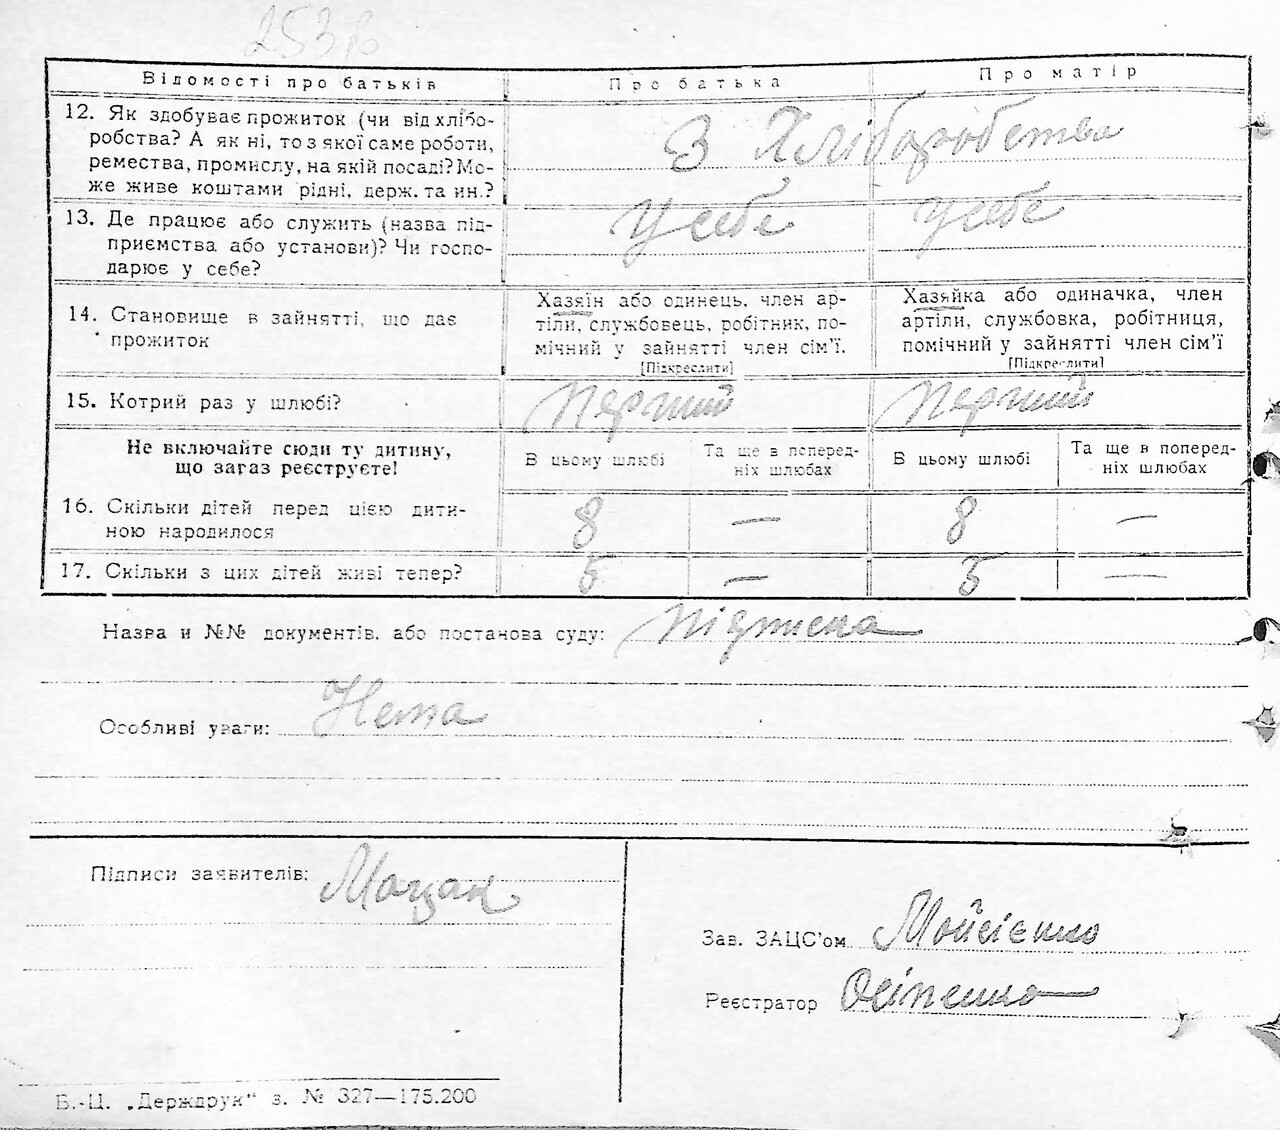 253 в
Відомості про батьків
Про батька
Про матір
12. Як здобуває прожиток (чи від хлібо-
робства? А як ні, то з якої саме роботи,
ремества, промислу, на якій посаді? Мо-
же живе коштами рідні, держ. та ин.?
З Хліборобства
13. Де працює або служить (назва під-
приємства або установи)? Чи госпо-
дарює у себе?
У себе
у себе
14. Становище в зайнятті, що дає
прожиток
Хазяїн або одинець, член ар-
тіли, службовець, робітник, по-
мічний у зайнятті член сім’ї.
[Підкреслити]
Хазяйка або одиначка, член
артіли, службовка, робітниця,
помічний у зайнятті член сім’ї
[Підкреслити]
15. Котрий раз у шлюбі?
Перший
Перший
Не включайте сюди ту дитину,
що зараз реєструєте!
В цьому шлюбі
Та ще в поперед-
ніх шлюбах
В цьому шлюбі
Та ще в поперед-
ніх шлюбах
16. Скільки дітей перед цією дити-
ною народилося
8 — 8 —
17. Скільки з цих дітей живі тепер?
5 — 5 —
Назва и №№ документів, або постанова суду: Підписка
Особливі уваги: Нема
Підписи заявителів: Мацак
Зав. ЗАЦС’ом Мойсієнко
Реєстратор Осіпенко
Б.-Ц. „Держдрук“ з. № 327—175.200